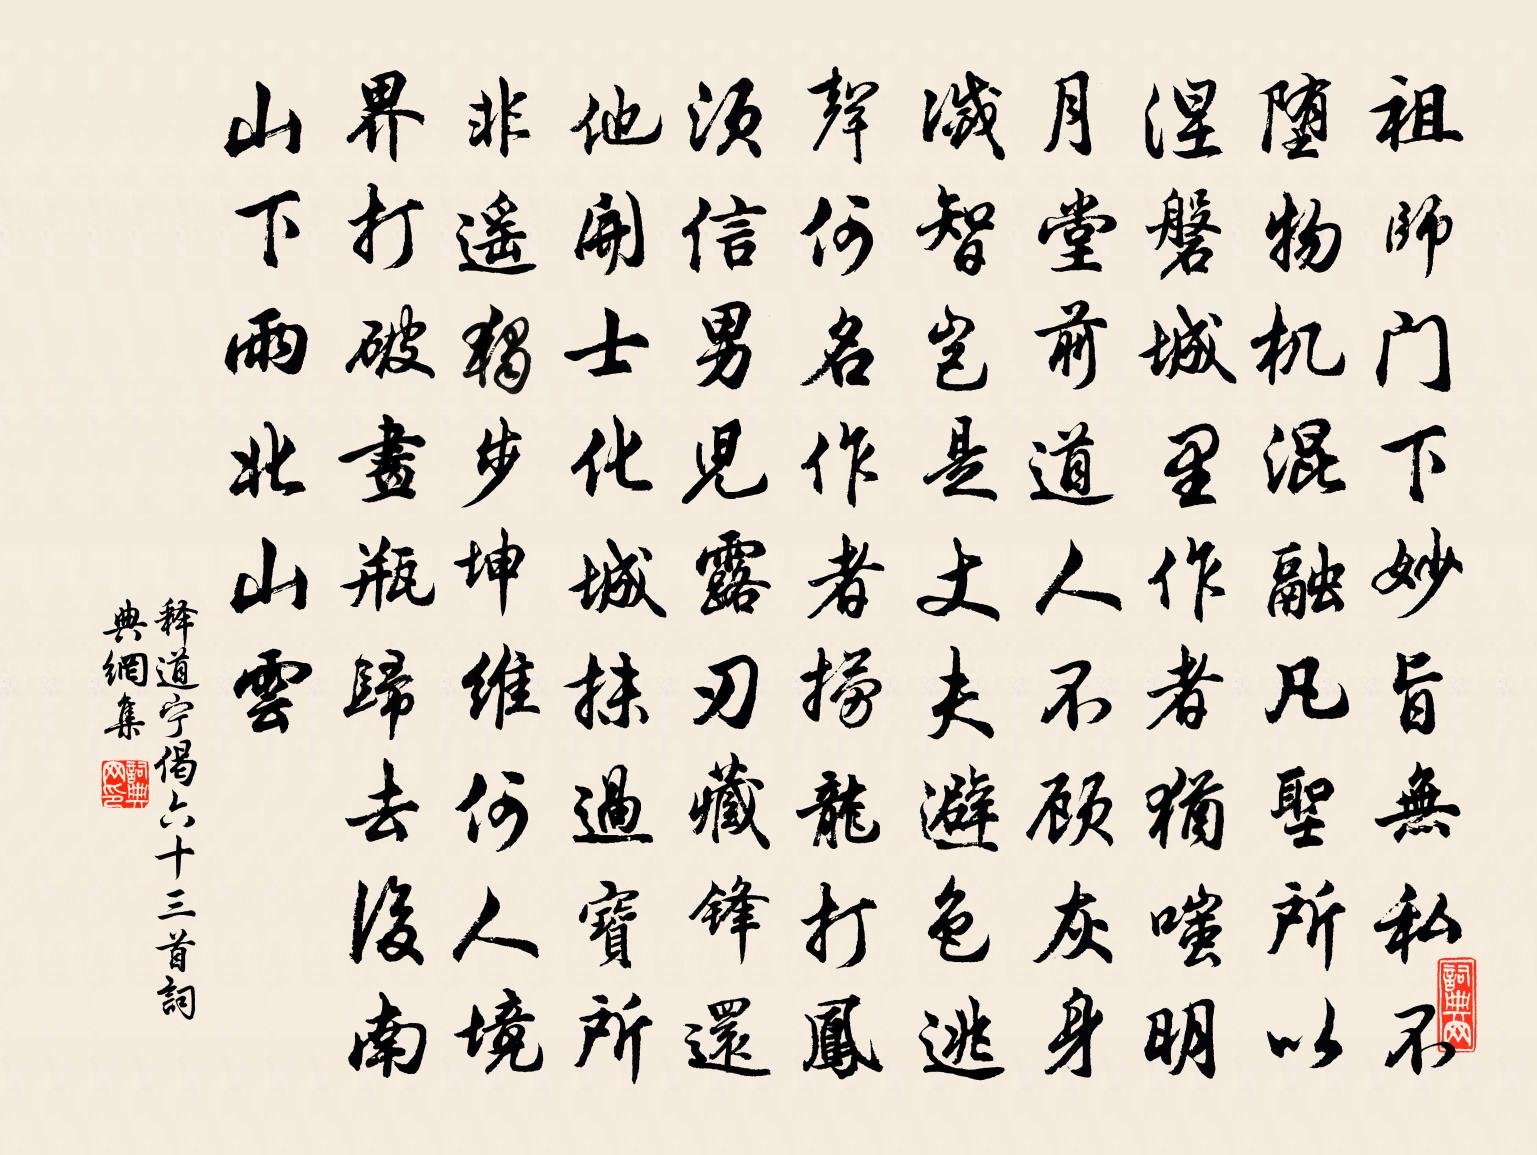 祖师门下妙旨無私不
堕物机混融凡聖所以
涅磐城里作者猶嗤明
月堂前道人不顾灰身
滅智岂是丈夫避色逃
聲何名作者撈龍打鳳
須信男児露刃藏锋還
他開士化城抹過寶所
非遥獨步坤維何人境
界打破畫瓶歸去後南
山下雨北山雲
释道宁偈六十三首詞
典網集
詞典网印
詞典网